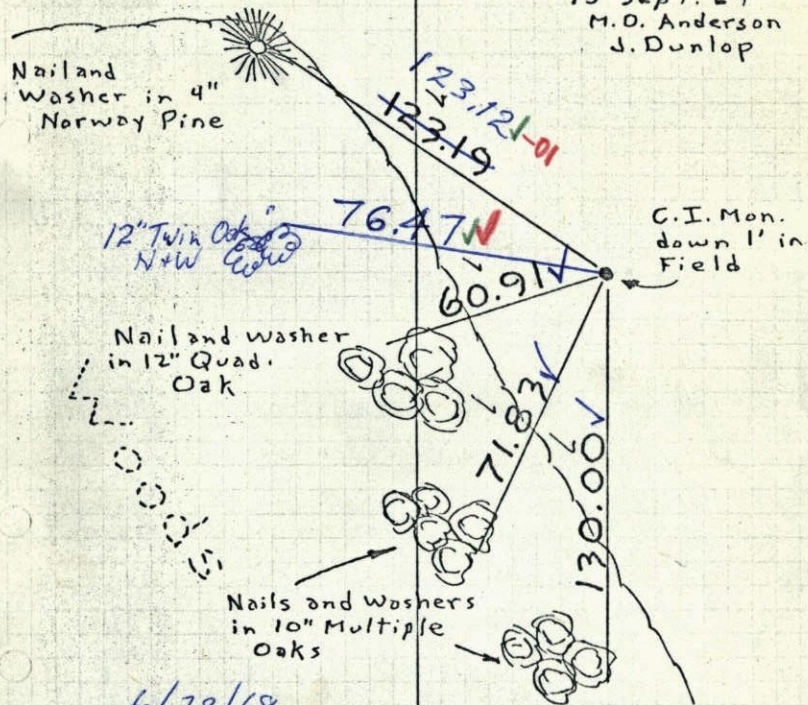 M.O. Anderson
J. Dunlop
Nail and
Washer in 4"
Norway Pine
123.12
123.19
-01
12" Twin Oak
N+W
76.47
C.I. Mon.
down 1' in
Field
60.91
Nail and washer
in 12" Quad.
Oak
71.83
130.00
Woods
Nails and Washers
in 10" Multiple
Oaks